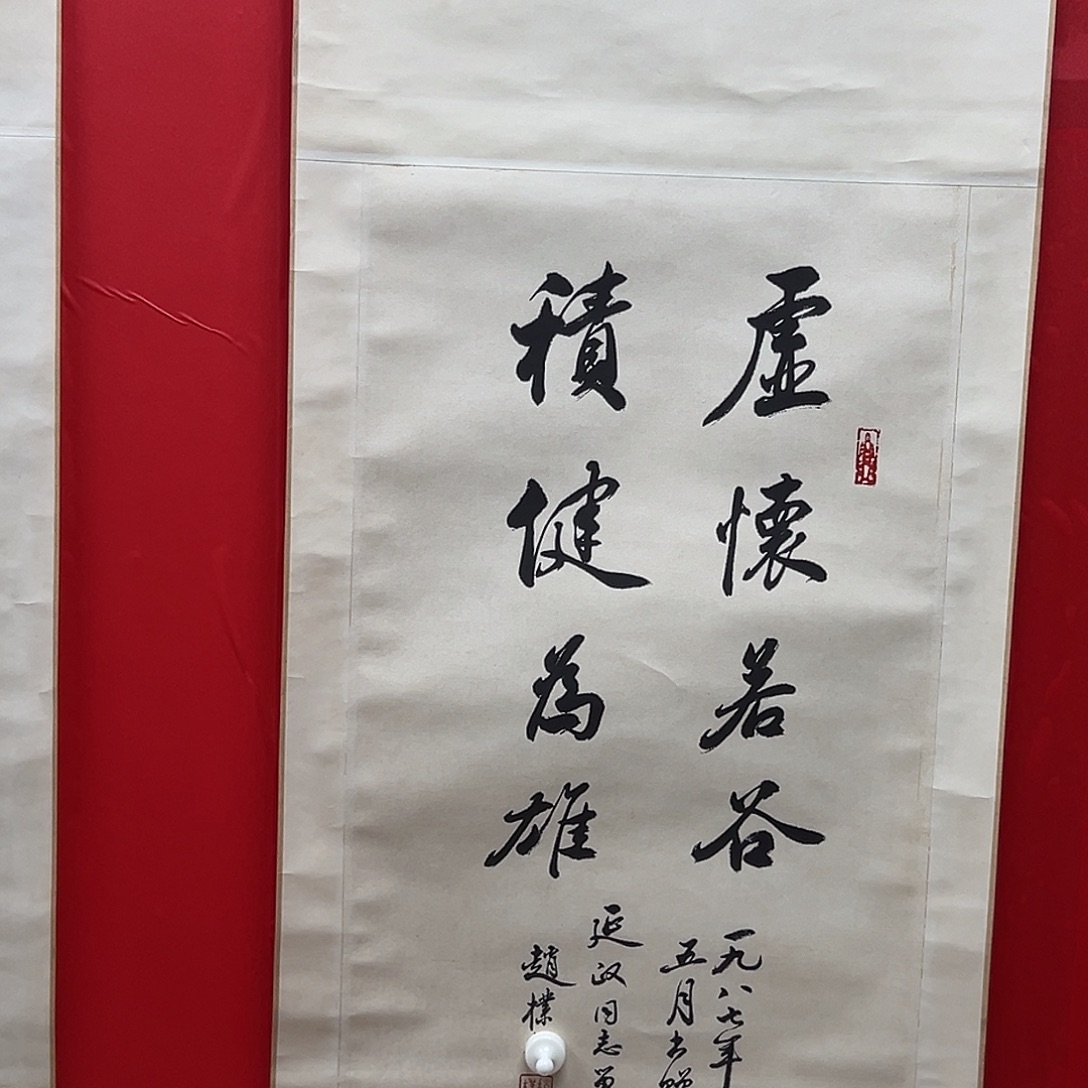 虛懷若谷
積健為雄
一九八七年
五月書贈
延汉同志
趙樸